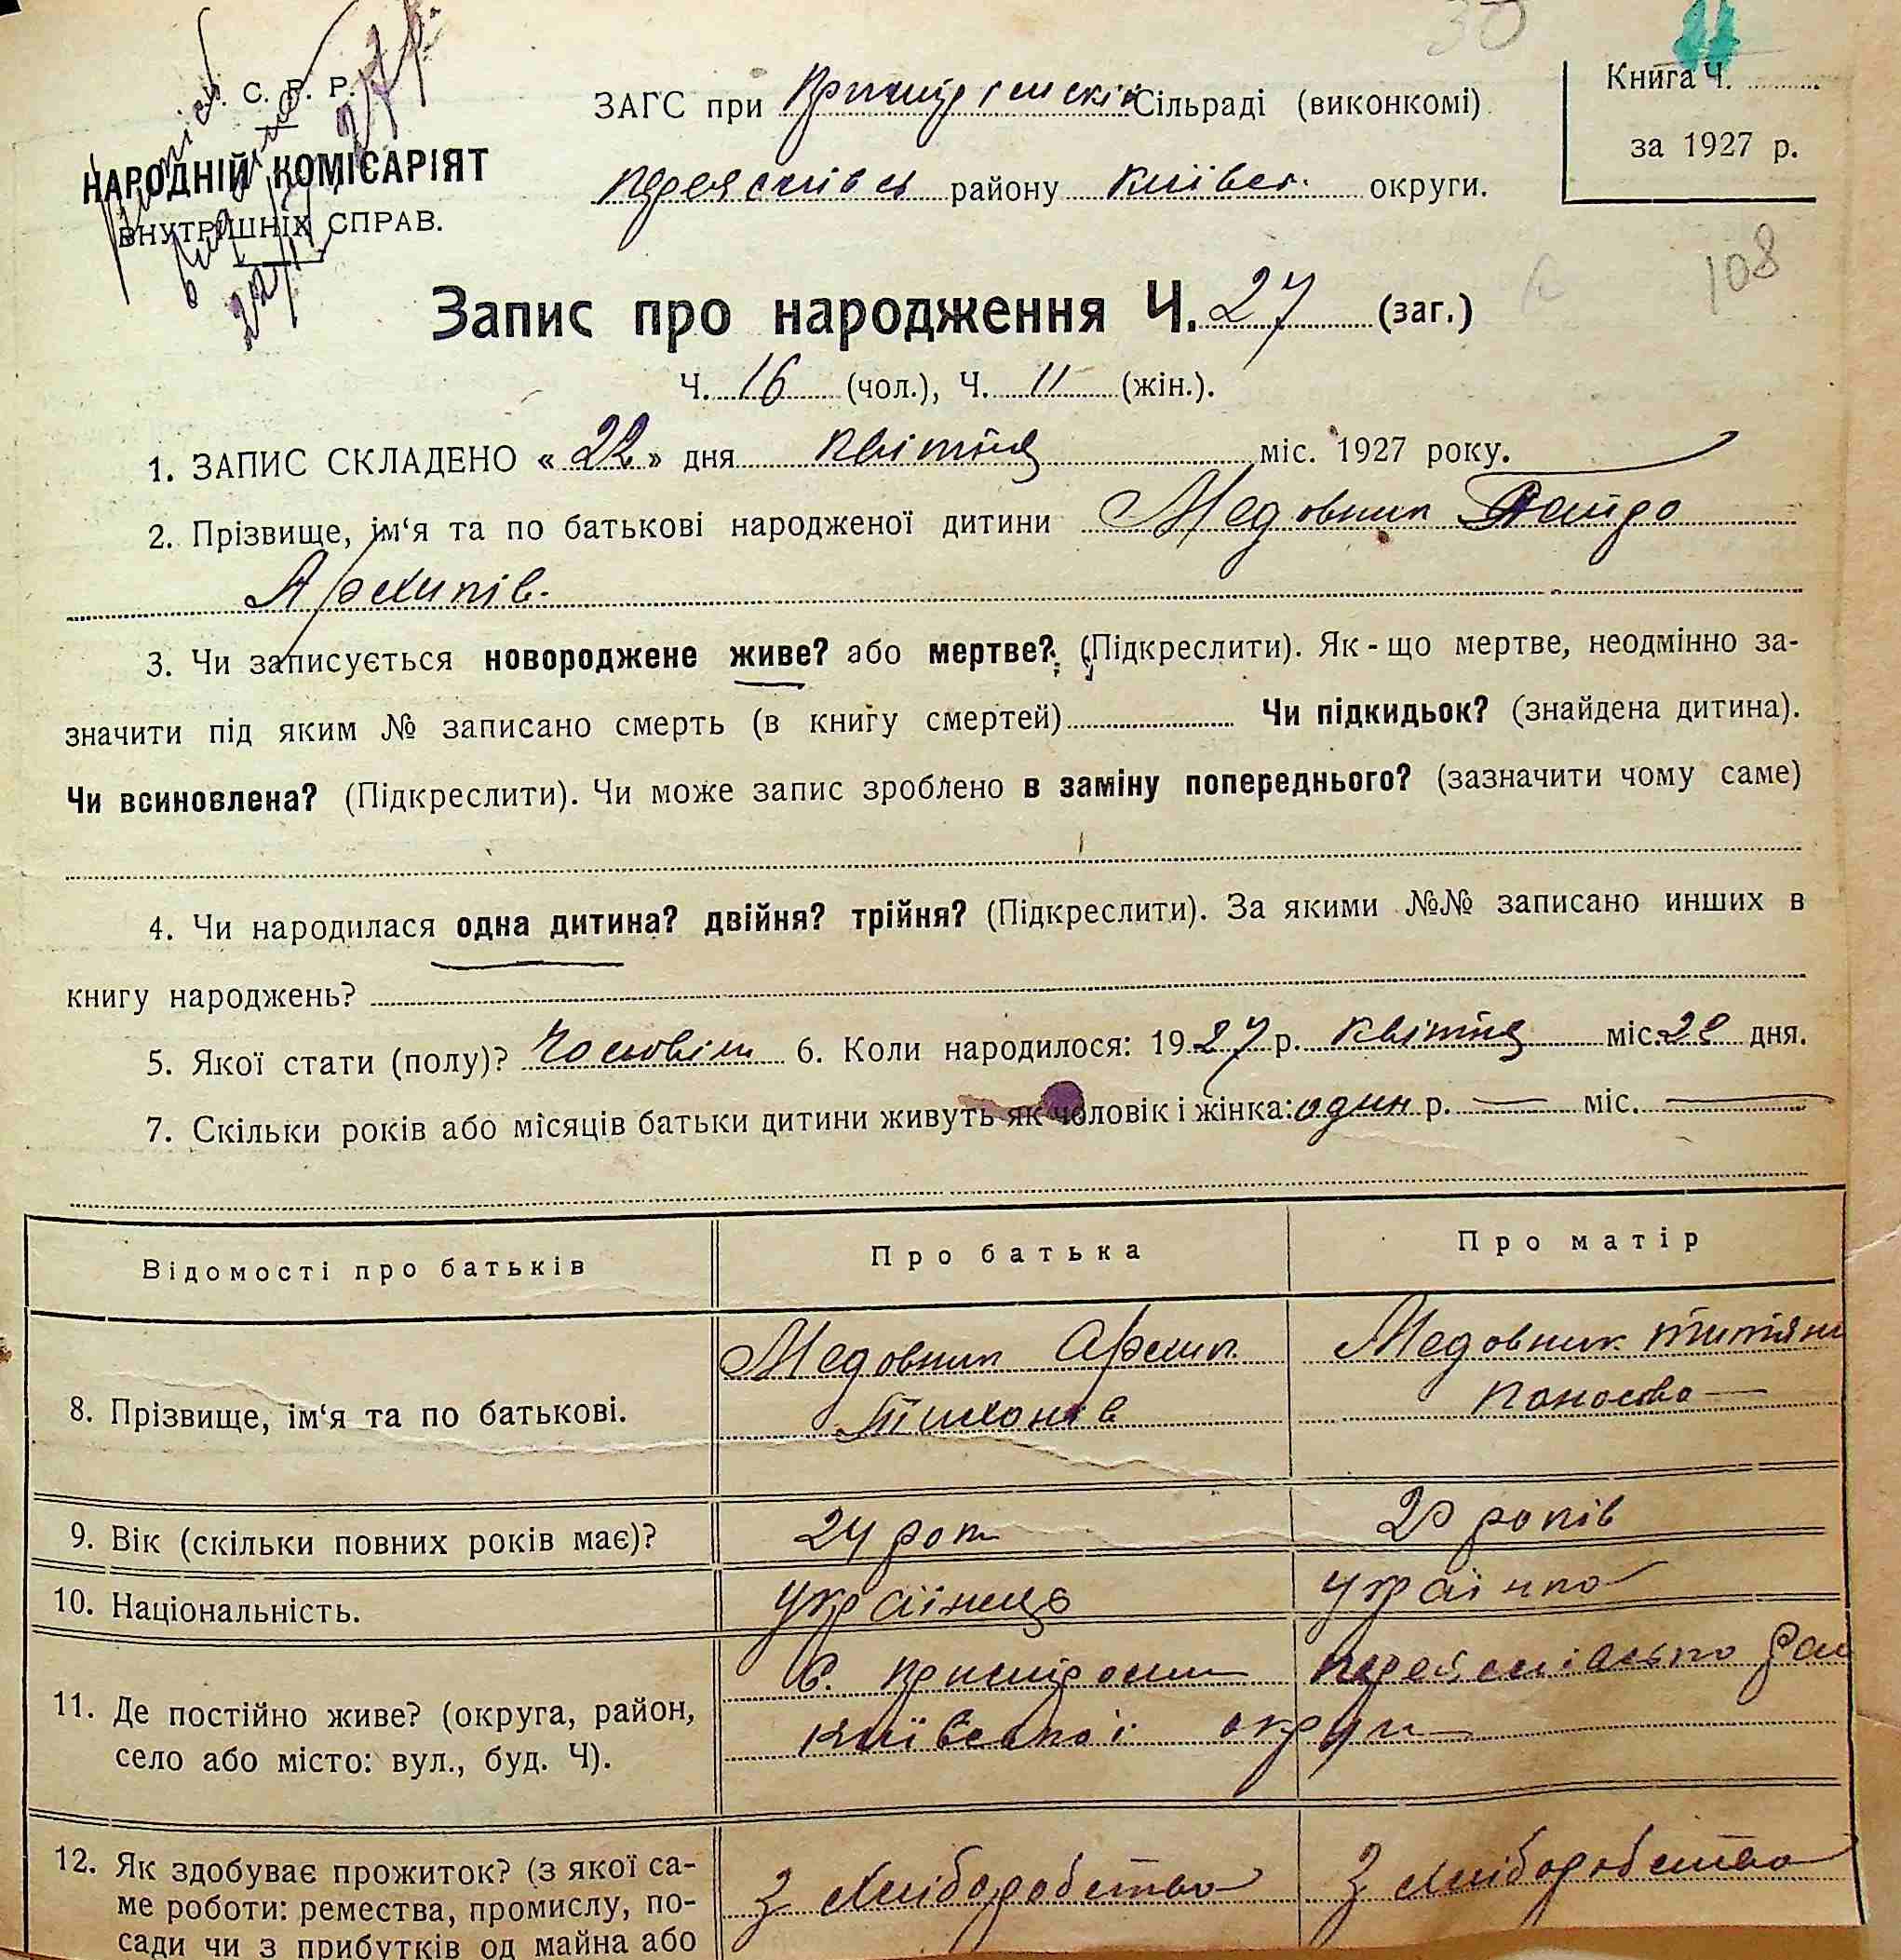 С. Р. Р.
НАРОДНІЙ КОМІСАРІЯТ
ВНУТРІШНІХ СПРАВ.
ЗАГС при Сільраді (виконкомі)
району Київск. округи.
Книга Ч.
за 1927 р.
108
Запис про народження Ч. 27 (заг.)
Ч. 16 (чол.), Ч. 11 (жін.).
1. ЗАПИС СКЛАДЕНО « 22 » дня квітня міс. 1927 року.
2. Прізвище, ім‘я та по батькові народженої дитини Медовник
Архипів.
3. Чи записується новороджене живе? або мертве? (Підкреслити). Як-що мертве, неодмінно за-
значити під яким № записано смерть (в книгу смертей) Чи підкидьок? (знайдена дитина).
Чи всиновлена? (Підкреслити). Чи може запис зроблено в заміну попереднього? (зазначити чому саме)
4. Чи народилася одна дитина? двійня? трійня? (Підкреслити). За якими №№ записано инших в
книгу народжень?
5. Якої стати (полу)? 6. Коли народилося: 1927 р. квітня міс. дня.
7. Скільки років або місяців батьки дитини живуть як чоловік і жінка: один р. — міс. —
Відомості про батьків Про батька Про матір
8. Прізвище, ім‘я та по батькові. Медовник Архип Медовник
Тихонів Паносова
9. Вік (скільки повних років має)? 24 рок 20 років
10. Національність. Українець Українка
11. Де постійно живе? (округа, район,
село або місто: вул., буд. Ч).
с.
Київської округи
12. Як здобуває прожиток? (з якої са-
ме роботи: ремества, промислу, по-
сади чи з прибутків од майна або
З хліборобства З хліборобства